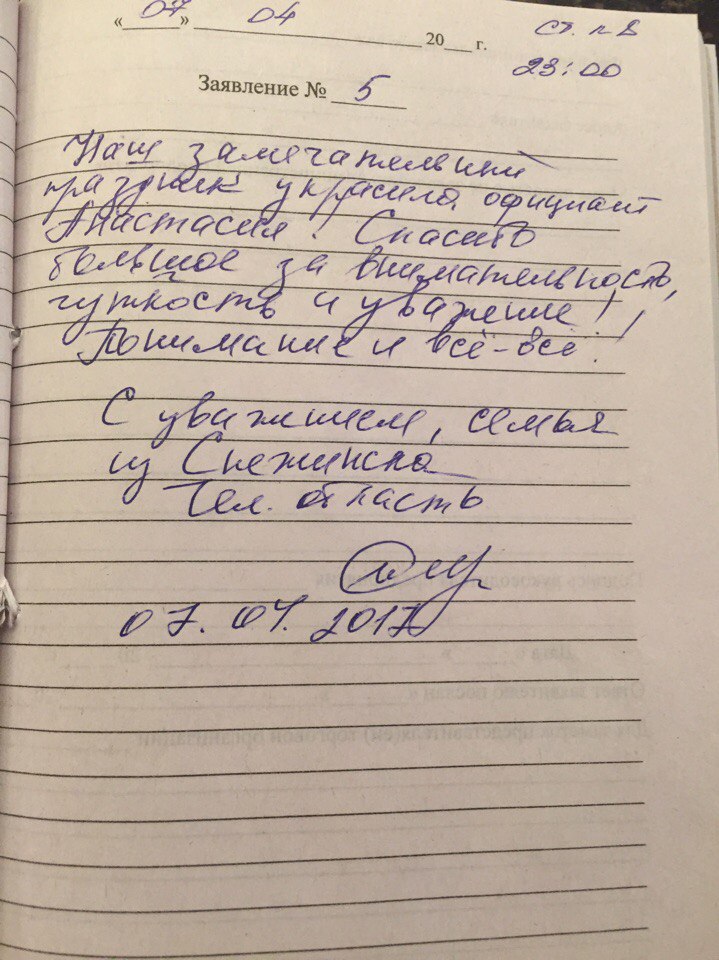 « 07 » 04 20 г.
ст. п 8
23:00
Заявление № 5
Наш замечательный
праздник украсила официант
Анастасия! Спасибо
большое за внимательность,
чуткость и уважение!
Понимание и всё-всё!
С уважением, семья
из Снежинска
Чел. область
07.04.2017